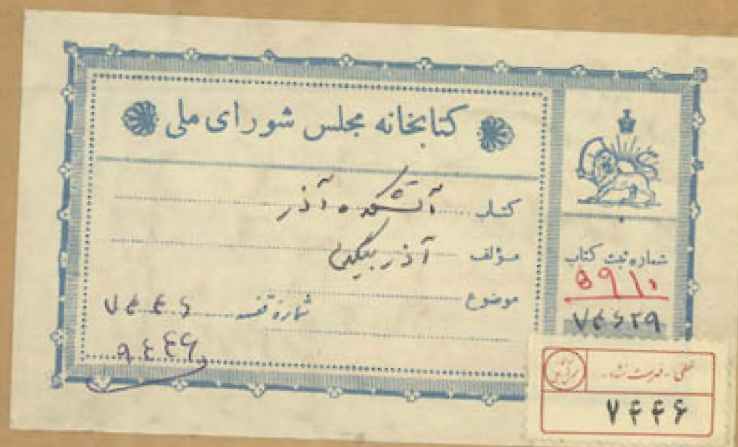 کتابخانه مجلس شورای ملی
کتاب آتشکده آذر
مؤلف آذر بیگدلی
موضوع
شماره قفسه ۷۴۴۶
۸۴۴۶
شماره ثبت کتاب
۵۹۱۰
۷۴۶۲۹
خطی - فهرست شده
۷۴۴۶